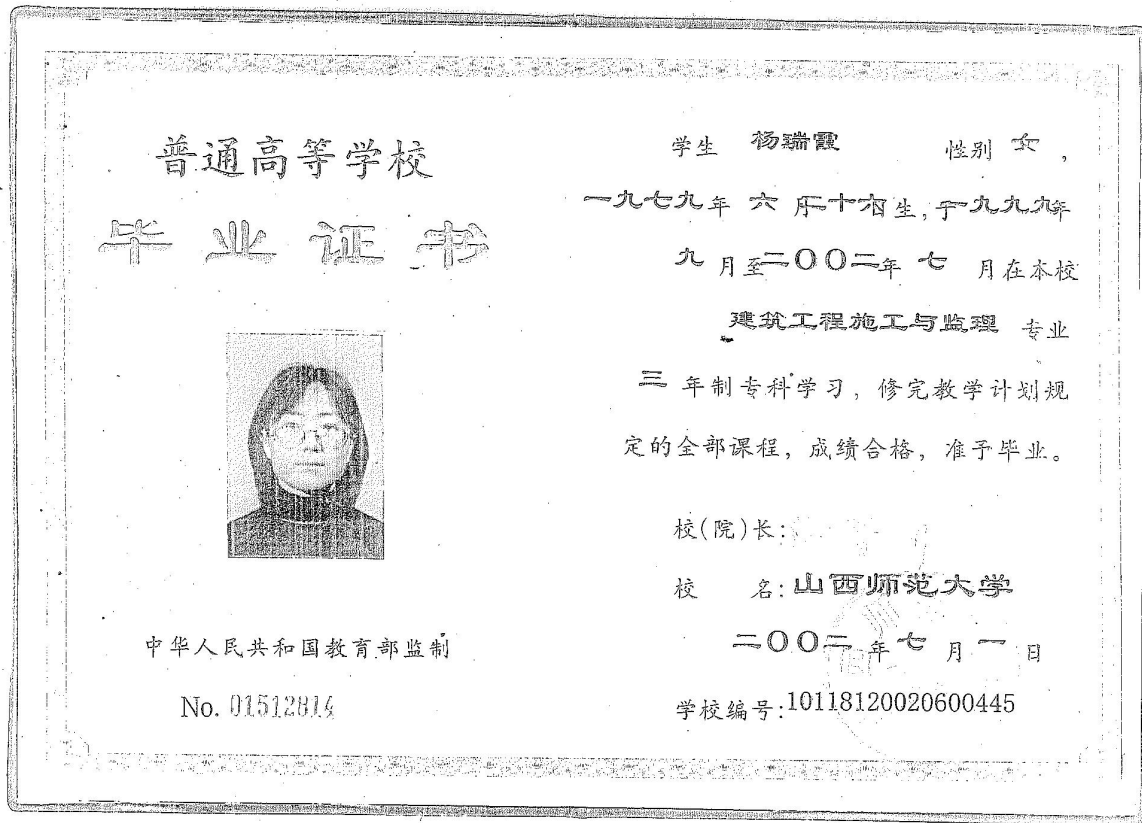 普通高等学校
毕业证书
中华人民共和国教育部监制
No. 01512814
学生 杨瑞霞 性别 女,
一九七九年 六 月二十六日生,于一九九九年
九 月至二〇〇二年 七 月在本校
建筑工程施工与监理 专业
三 年制专科学习,修完教学计划规
定的全部课程,成绩合格,准予毕业。
校(院)长:
校 名:山西师范大学
二〇〇二 年 七 月 一 日
学校编号:10118120020600445